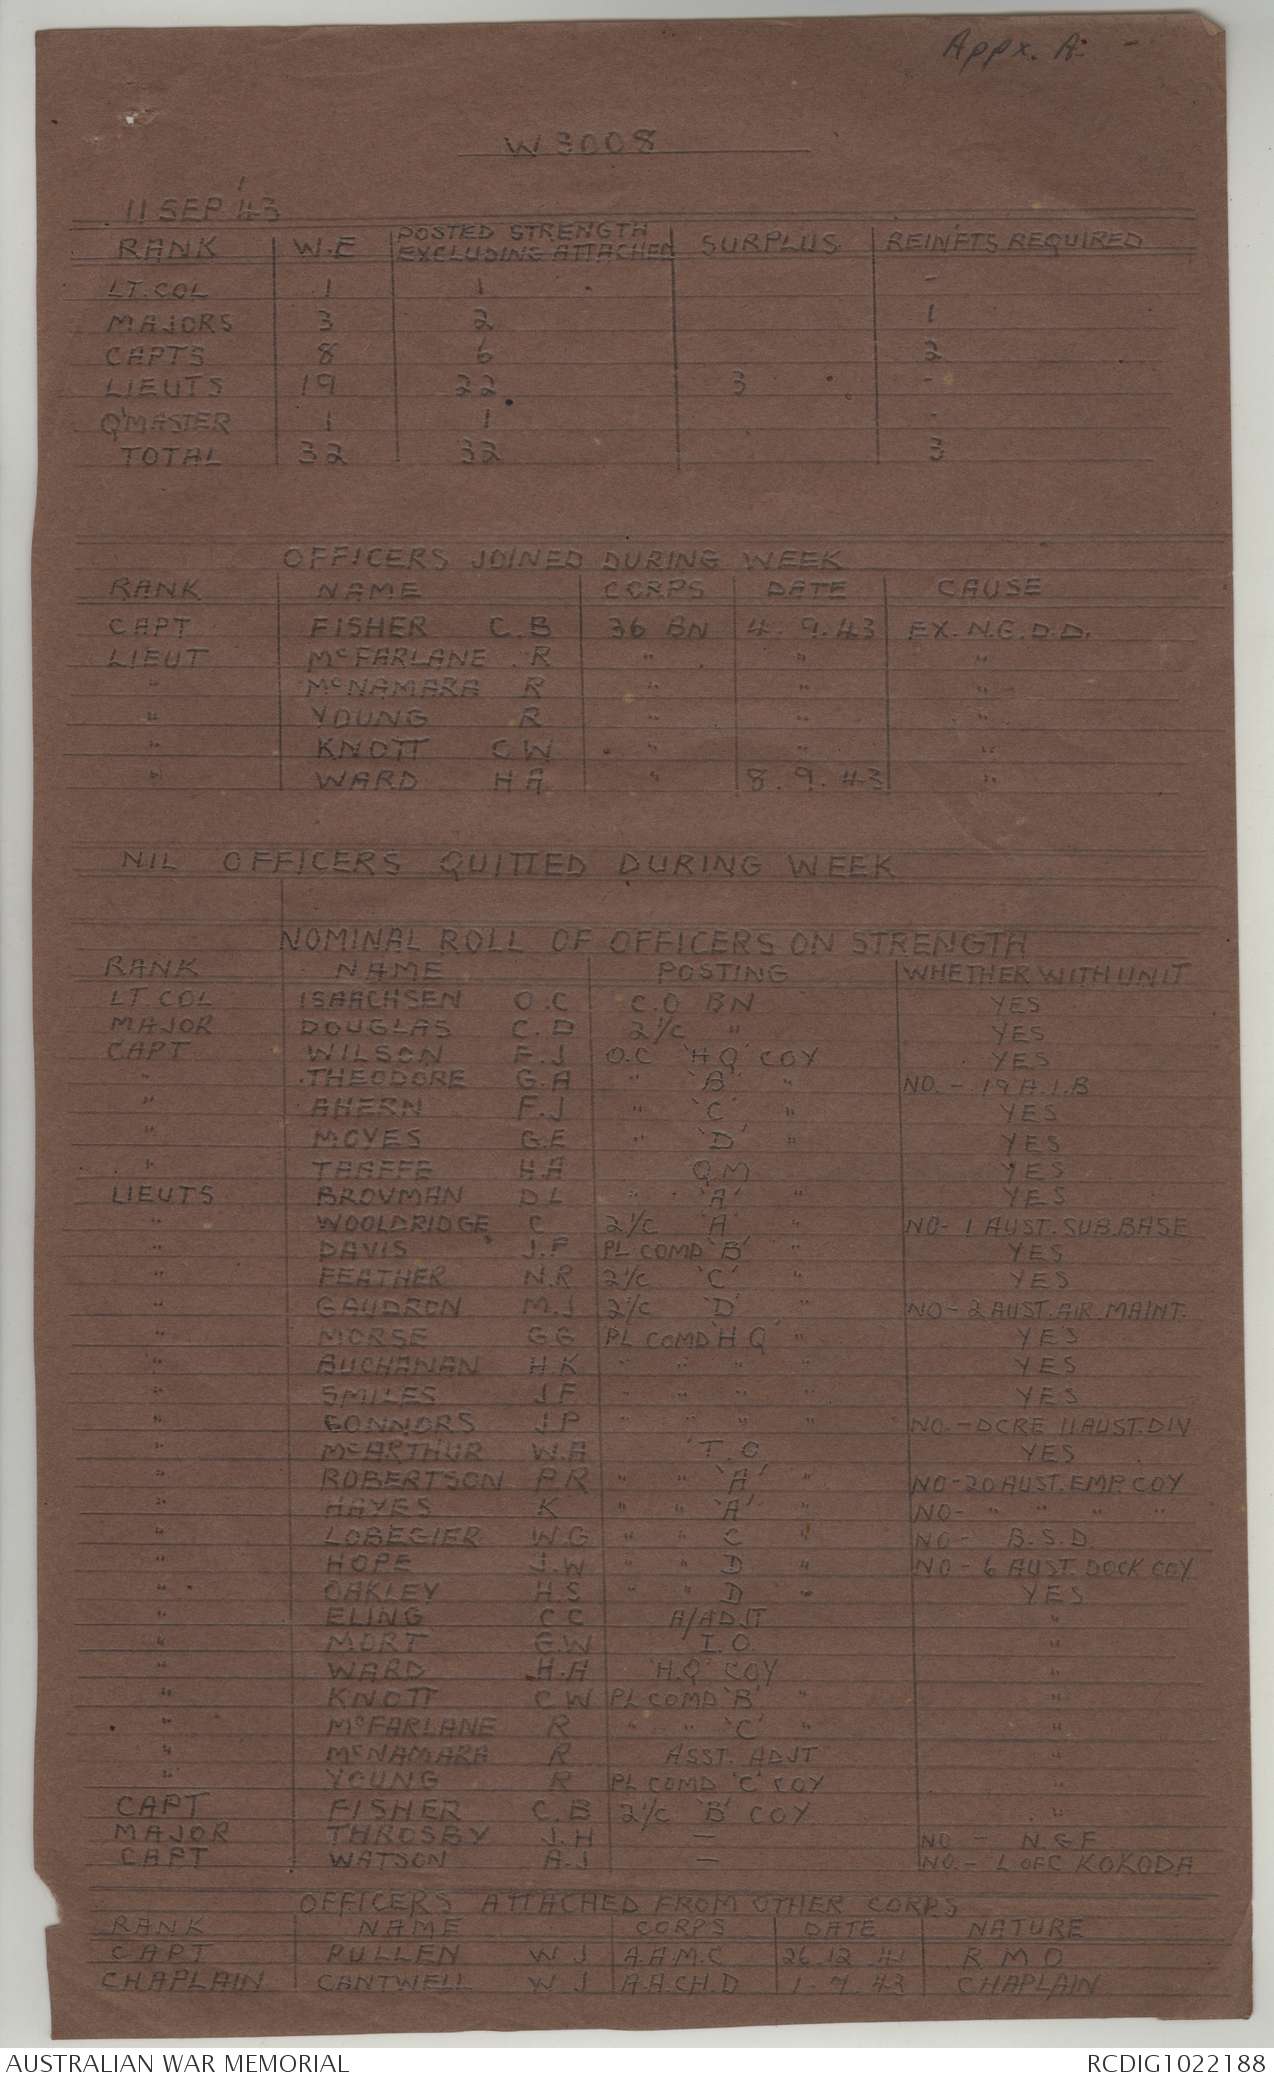 Appx. A. -
W 3008
11 SEP '43
RANK W.E POSTED STRENGTH EXCLUDING ATTACHED SURPLUS REINFTS REQUIRED
LT. COL 1 1 -
MAJORS 3 2 1
CAPTS 8 6 2
LIEUTS 19 22 3 -
Q'MASTER 1 1 -
TOTAL 32 32 3
OFFICERS JOINED DURING WEEK
RANK NAME CORPS DATE CAUSE
CAPT FISHER C.B 36 BN 4.9.43 EX. N.G.D.D.
LIEUT McFARLANE R " " "
" McNAMARA R " " "
" YOUNG R " " "
" KNOTT C W " " "
" WARD H A " 8.9.43 "
NIL OFFICERS QUITTED DURING WEEK
NOMINAL ROLL OF OFFICERS ON STRENGTH
RANK NAME POSTING WHETHER WITH UNIT
LT. COL ISAACHSEN O.C C.O BN YES
MAJOR DOUGLAS C.D 2I/C " YES
CAPT WILSON F.J O.C 'HQ' COY YES
" THEODORE G.A " 'B' " NO. - 19 A.I.B
" AHERN F.J " 'C' " YES
" MOYES G.E " 'D' " YES
" TAAFFE H.A QM YES
LIEUTS BROVMAN D L " 'A' " YES
" WOOLDRIDGE C 2I/C 'A' " NO- 1 AUST. SUB. BASE
" DAVIS J.F PL COMD 'B' " YES
" FEATHER N.R 2I/C 'C' " YES
" GAUDRON M.J 2I/C 'D' " NO - 2 AUST. AIR. MAINT.
" MORSE G G PL COMD 'H Q' " YES
" BUCHANAN H.K " " " " YES
" SMILES J.F " " " " YES
" CONNORS J.P " " " " NO. - DCRE 11 AUST. DIV
" McARTHUR W.A 'T.O YES
" ROBERTSON P R " " 'A' " NO - 20 AUST. EMP. COY
" HAYES K " " 'A' " NO- " " " "
" LOBEGIER W.G " " C " NO - B.S.D.
" HOPE J.W " " D " NO - 6 AUST. DOCK COY
" OAKLEY H.S " " D " YES
" ELING C C A/ADJT "
" MORT G.W I.O. "
" WARD H.A 'H.Q' COY "
" KNOTT C W PL COMD 'B' " "
" McFARLANE R " " 'C' " "
" McNAMARA R ASST. ADJT "
" YOUNG R PL COMD 'C' COY "
CAPT FISHER C.B 2I/C 'B' COY "
MAJOR THROSBY J.H - NO - N.G.F
CAPT WATSON A.J - NO. - L OF C KOKODA
OFFICERS ATTACHED FROM OTHER CORPS
RANK NAME CORPS DATE NATURE
CAPT PULLEN W J A.A.M.C 26.12.41 R M O
CHAPLAIN CANTWELL W J A.A.CH.D 1.9.43 CHAPLAIN
AUSTRALIAN WAR MEMORIAL RCDIG1022188